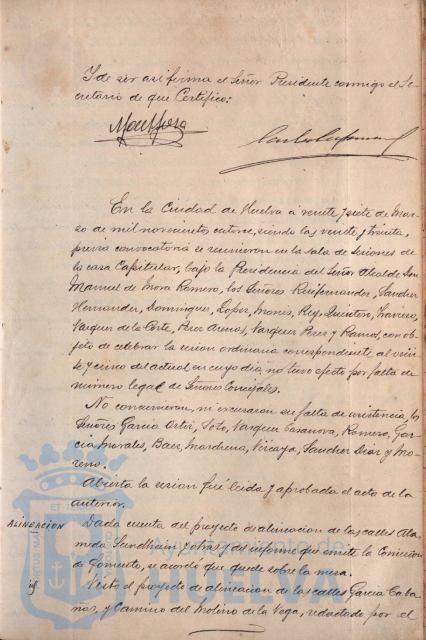 Y de ser asi firma el Señor Presidente conmigo el Se-
cretario de que Certifico:
En la Ciudad de Huelva á veinte y siete de Mar-
zo de mil novecientos catorce, siendo las veinte y treinta,
previa convocatoria se reunieron en la sala de Sesiones de
la casa Capitular, bajo la Presidencia del Señor Alcalde Don
Manuel de Mora Romero, los Señores Ruifernandez, Sanchez
Hernandez, Dominguez, Lopez, Monis, Rey, Quintero, Travero,
Vazquez de la Corte, Perez Arenas, Vazquez Perez y Ramos, con ob-
jeto de celebrar la sesion ordinaria correspondiente al vein-
te y cinco del actual en cuyo dia no tuvo efecto por falta de
número legal de Señores Concejales.
No concurrieron, ni excusaron su falta de asistencia, los
Señores Garcia Ortiz, Soto, Vazquez Casanova, Romero, Gar-
cia Morales, Baez, Mardrena, Vizcaya, Sanchez Diaz y Mo-
reno.
Abierta la sesion fué leida y aprobada el acta de la
anterior.
ALINEACION
Dada cuenta del proyecto de alineacion de las calles Ala-
meda Sundheim y otras y del informe que emite la Comision
de Fomento, se acordó que quede sobre la mesa.
id
Visto el proyecto de alineacion de las calles Garcia Caba-
ñas, y Camino del Molino de la Vega, redactado por el
Ayuntamiento de
HUELVA